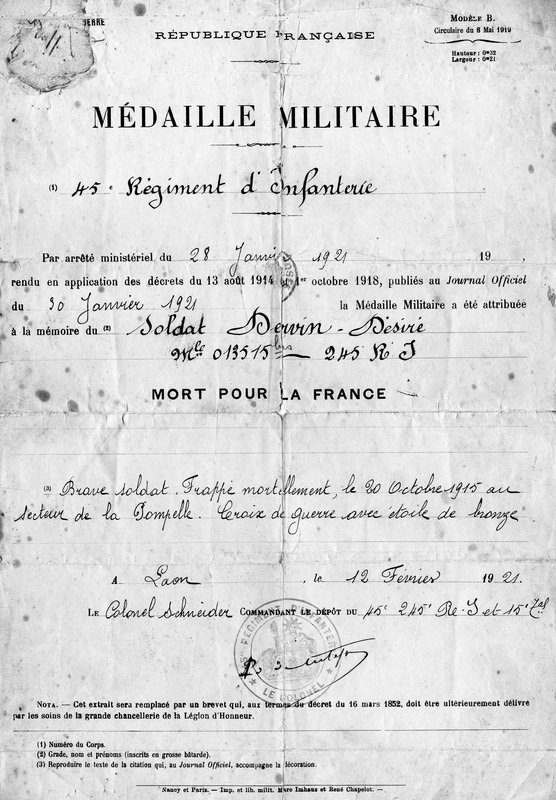 ERRE
RÉPUBLIQUE FRANÇAISE
MODÈLE B.
Circulaire du 8 Mai 1919
Hauteur : 0m32
Largeur : 0m21
MÉDAILLE MILITAIRE
(1) 45e Régiment d'Infanterie
Par arrêté ministériel du 28 Janvier 1921 19 ,
rendu en application des décrets du 13 août 1914 et 1er octobre 1918, publiés au Journal Officiel
du 30 Janvier 1921 la Médaille Militaire a été attribuée
à la mémoire du (2) Soldat Dervin - Désiré
Mle 013515 bis — 245 R I
MORT POUR LA FRANCE
(3) Brave soldat. Frappé mortellement, le 20 Octobre 1915 au
secteur de la Pompelle. Croix de guerre avec étoile de bronze
A Laon , le 12 Février 1921.
LE Colonel Schneider COMMANDANT LE DÉPÔT DU 45e 245e R. I et 15e Tal
RÉGIMENT D'INFANTERIE
LE COLONEL
NOTA. — Cet extrait sera remplacé par un brevet qui, aux termes du décret du 16 mars 1852, doit être ultérieurement délivré
par les soins de la grande chancellerie de la Légion d'Honneur.
(1) Numéro du Corps.
(2) Grade, nom et prénoms (inscrits en grosse bâtarde).
(3) Reproduire le texte de la citation qui, au Journal Officiel, accompagne la décoration.
Nancy et Paris. — Imp. et lib. milit. Marc Imhaus et René Chapelot. —